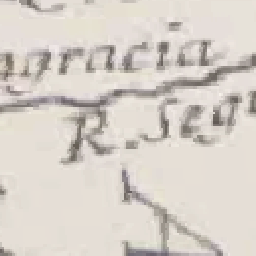 ngracia
R. Segu